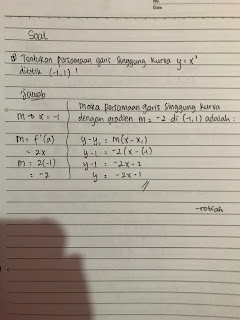 No.
Date
Soal
Tentukan persamaan garis singgung kurva y = x²
dititik (-1,1) !
Jawab
m → x = -1
m = f'(a)
= 2x
m = 2(-1)
= -2
Maka persamaan garis singgung kurva
dengan gradien m = -2 di (-1,1) adalah :
y - y₁ = m(x - x₁)
y - 1 = -2(x - (1)
y - 1 = -2x - 2
y = -2x - 1
- robiah